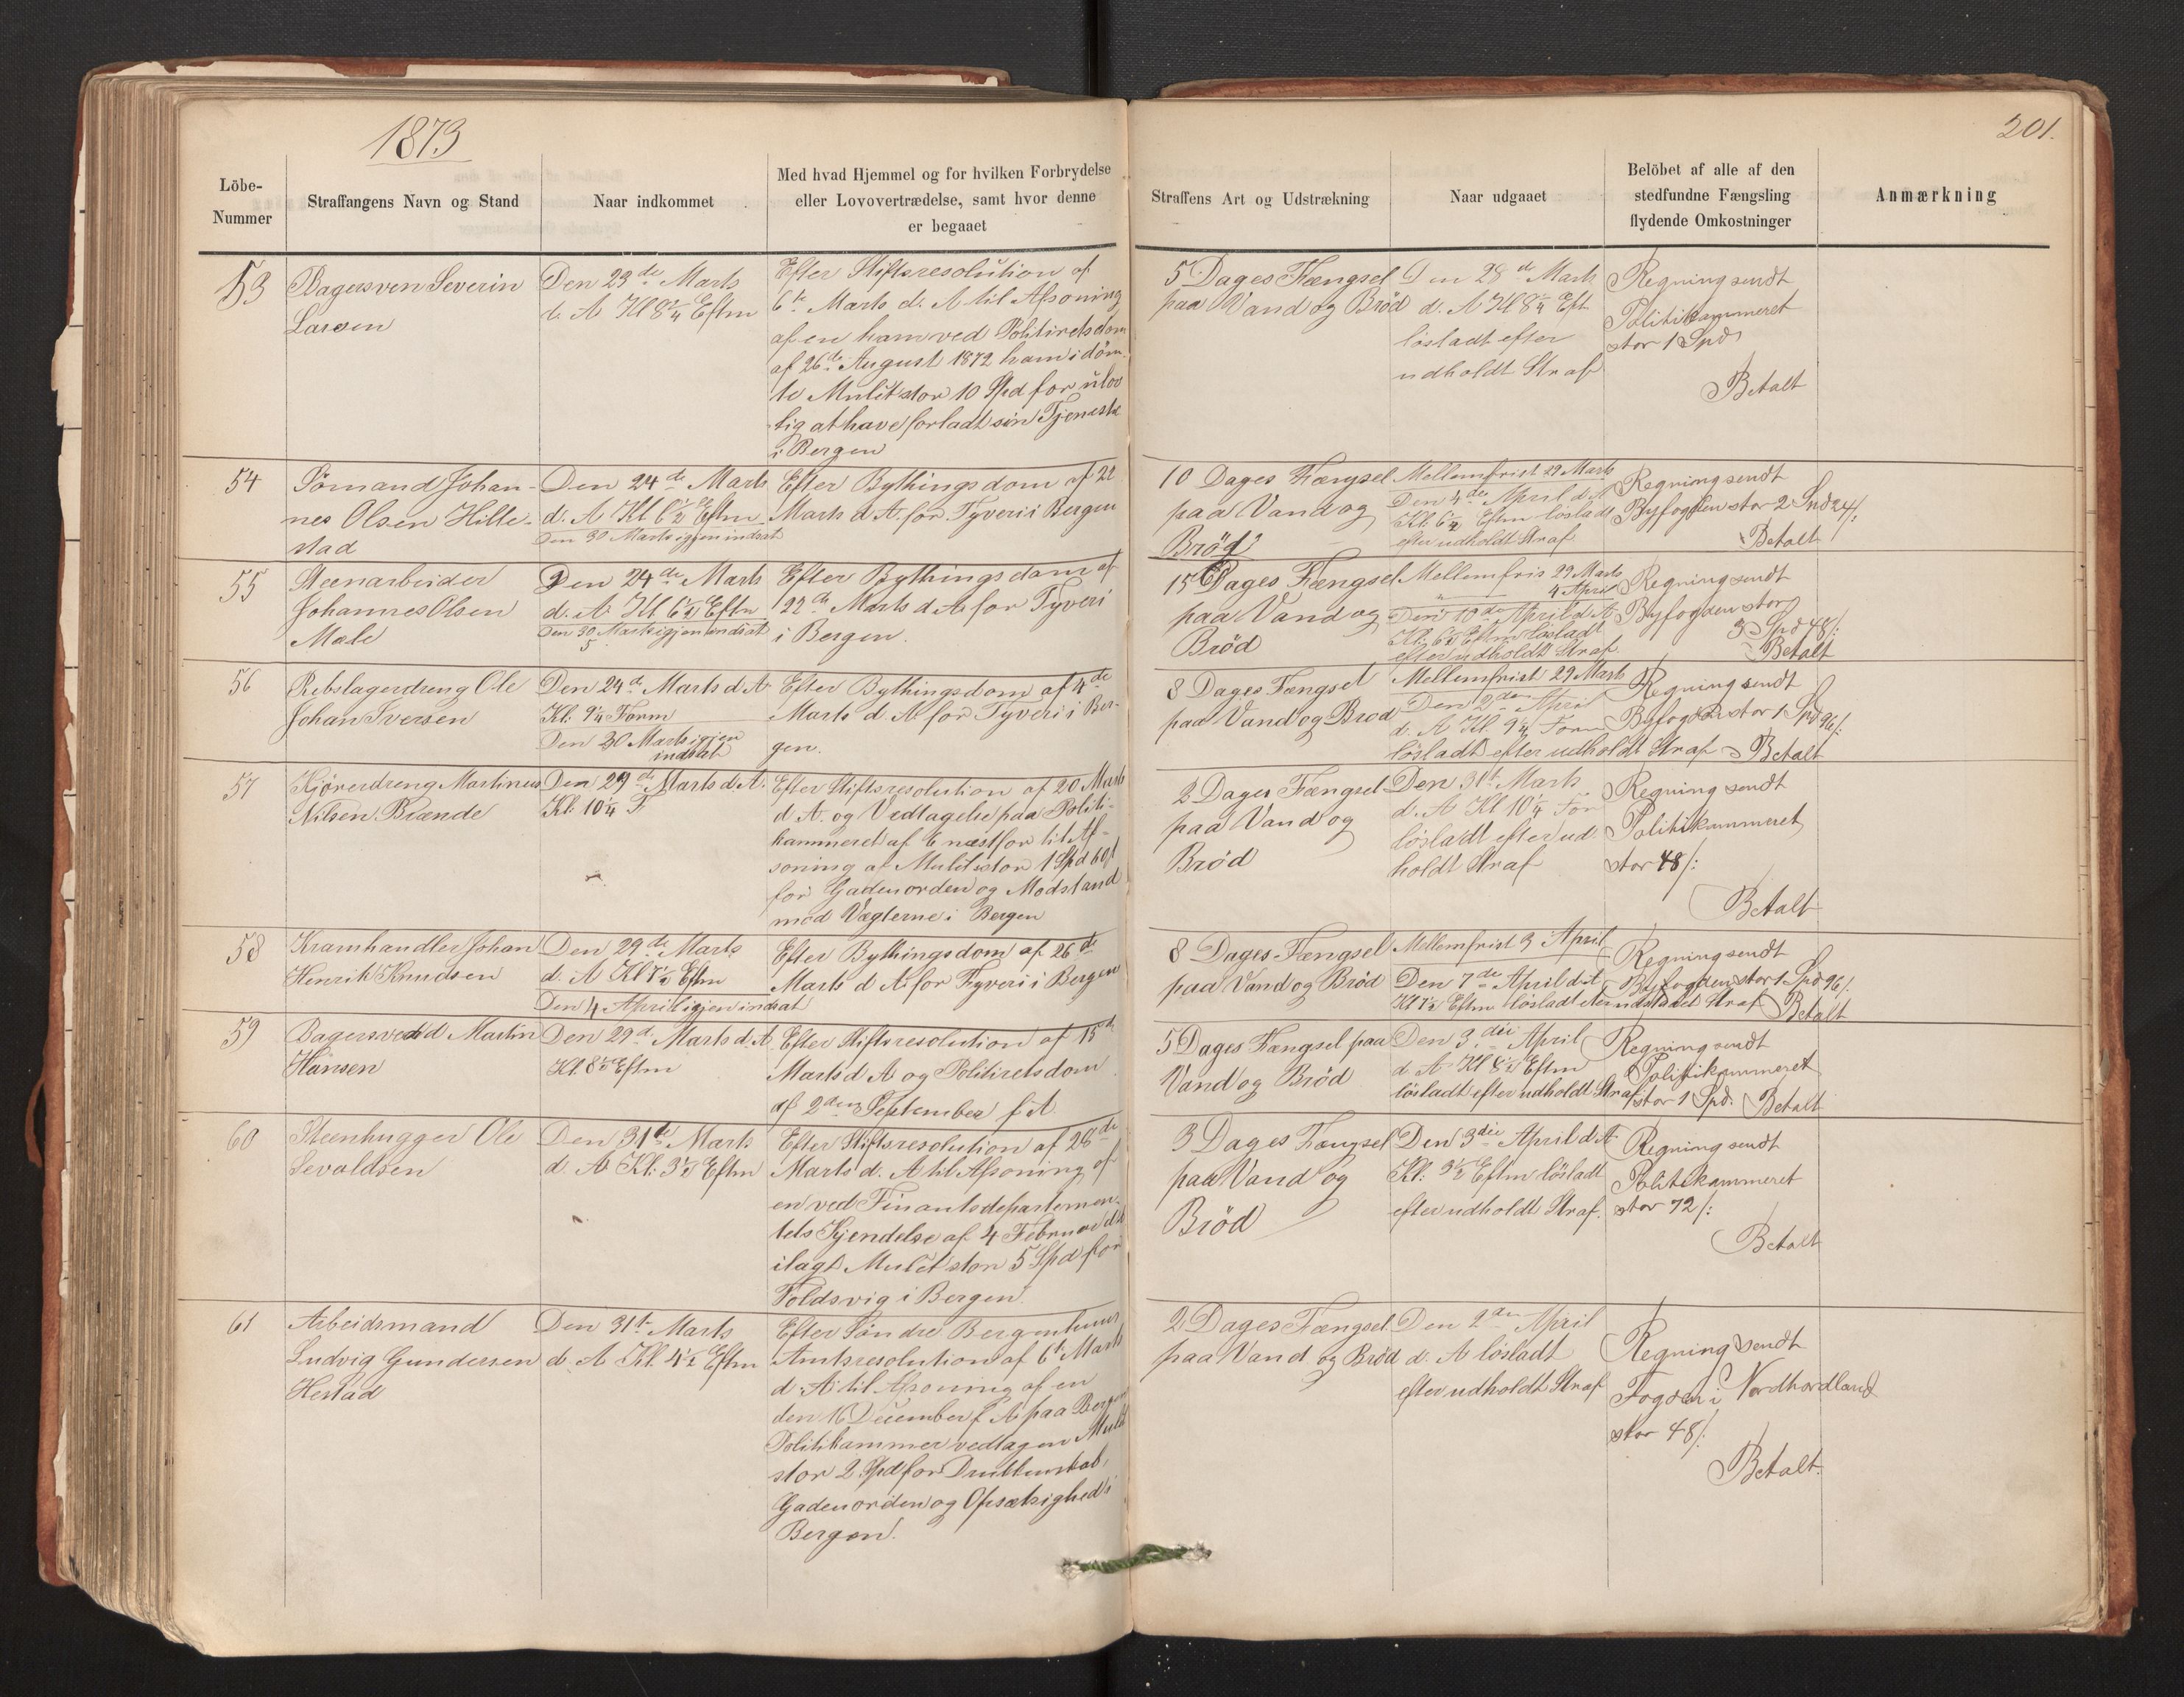 1873
201.
Löbe-
Nummer
Straffangens Navn og Stand
Naar indkommet
Med hvad Hjemmel og for hvilken Forbrydelse
eller Lovovertrædelse, samt hvor denne
er begaaet
Straffens Art og Udstrækning
Naar udgaaet
Belöbet af alle af den
stedfundne Fængsling
flydende Omkostninger
Anmærkning
53
Bagersven Severin
Larsen
Den 23de Marts
d. A Kl 8¼ Eftm
Efter Stiftsresolution af
6te Marts d. A til Afsoning
af en ham ved Politiretsdom
af 26de August 1872 ham idöm-
te Mulct stor 10 Spd for ulov
lig at have forladt sin Tjeneste
i Bergen
5 Dages Fængsel
paa Vand og Bröd
Den 28de Marts
d. A Kl 8¼ Eft
lösladt efter
udholdt Straf
Regning sendt
Politikammeret
stor 1 Spd
Betalt
54
Sömand Johan-
nes Olsen Hille-
stad
Den 24de Marts
d. A Kl 6½ Eftm
Den 30 Marts igjen indsat
Efter Bythingsdom af 22
Marts d A for Tyveri i Bergen
10 Dages Fængsel
paa Vand og
Bröd
Mellemfrist 29 Marts
Den 4de April d. A
Kl 6½ Eftm lösladt
efter udholdt Straf
Regning sendt
Byfogden stor 2 Spd 24/:
Betalt
55
Steenarbeider
Johannes Olsen
Mæle
Den 24de Marts
d. A. Kl 6½ Eftm
Den 30 Marts igjen indsat
5
Efter Bythingsdom af
22de Marts d A for Tyveri
i Bergen.
15 Dages Fængsel
paa Vand og
Bröd
Mellemfris 29 Marts
" 4 April
Den 10de April d. A
Kl: 6½ Eftm lösladt
efter udholdt Straf
Regning sendt
Byfogden stor
3 Spd 48/:
Betalt
56
Rebslagerdreng Ole
Johan Iversen
Den 24d Marts d A
Kl: 9¼ Form
Den 30 Marts igjen
indsat
Efter Bythingsdom af 4de
Marts d A for Tyveri i Ber-
gen.
8 Dages Fængsel
paa Vand og Bröd
Mellemfrist 29 Marts
Den 2den April
d. A Kl. 9¼ Form
lösladt efter udholdt Straf
Regning sendt
Byfogden stor 1 Spd 96/:
Betalt
57
Kjörerdreng Martinus
Nilsen Brænde
Den 29de Marts d. A.
Kl. 10¼ F
Efter Stiftsresolution af 20 Marts
d A. og Vedtagelse paa Politi-
kammeret af 6 næstfor til Af-
soning af Mulct stor 1 Spd 60/
for Gadeuorden og Modstand
mod Vægterne i Bergen
2 Dages Fængsel
paa Vand og
Bröd
Den 31te Marts
d. A Kl 10¼ For
lösladt efter ud
holdt Straf
Regning sendt
Politikammeret
stor 48/:
Betalt
58
Kramhandler Johan
Henrik Knudsen
Den 29de Marts
d. A Kl 7½ Eftm
Den 4 April igjen indsat
Efter Bythingsdom af 26de
Marts d A for Tyveri i Bergen
8 Dages Fængsel
paa Vand og Bröd
Mellemfrist 3 April
Den 7de April d. A
Kl 7½ Eftm lösladt Straf
Regning sendt
Byfogden stor 1 Spd 96/:
Betalt
59
Bagersvend Martin
Hansen
Den 29d Marts d. A
Kl. 8½ Eftm
Efter Stiftsresolution af 15de
Marts d A og Politiretsdom
af 2den September f A
5 Dages Fængsel paa
Vand og Bröd
Den 3die April
d. A Kl 8½ Eftm
lösladt efter udholdt Straf
Regning sendt
Politikammeret
stor 1 Spd. Betalt
60
Steenhugger Ole
Sevaldsen
Den 31te Marts
d. A Kl: 3½ Eftm
Efter Stiftsresolution af 28de
Marts d. A til Afsoning af
en ved Finantsdepartemen-
tets Kjendelse af 4 Februar d A
ilagt Mulct stor 5 Spd for
Toldsvig i Bergen.
3 Dages Fængsel
paa Vand og
Bröd
Den 3die April d. A
Kl: 3½ Eftm lösladt
efter udholdt Straf.
Regning sendt
Politikammeret
stor 72/:
Betalt
61
Arbeidsmand
Ludvig Gundersen
Hestad
Den 31te Marts
d. A Kl. 4½ Eftm
Efter Söndre Bergenhuus
Amtsresolution af 6te Marts
d. A til Afsoning af en
den 16 December f A paa Bergen
Politikammer vedtagen Mulct
stor 2 Spd for Drukkenskab,
Gadeuorden og Opsætsighed i
Bergen.
2 Dages Fængsel
paa Vand og Bröd
Den 2den April
d. A lösladt
efter udholdt Straf
Regning sendt
Fogden i Nordhordland
stor 48/:
Betalt.